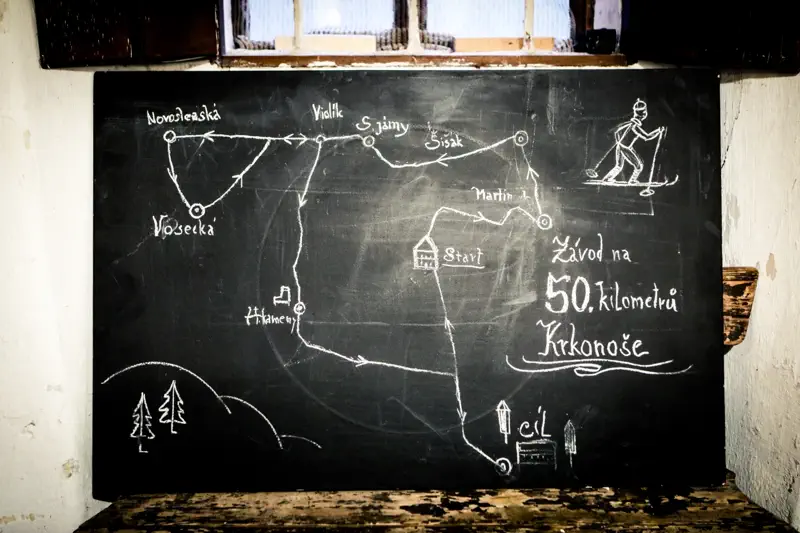 Novoslezská
Violík
S. jámy
Šišák
Martin
Vosecká
Start
Závod na
50. kilometrů
Krkonoše
cíl